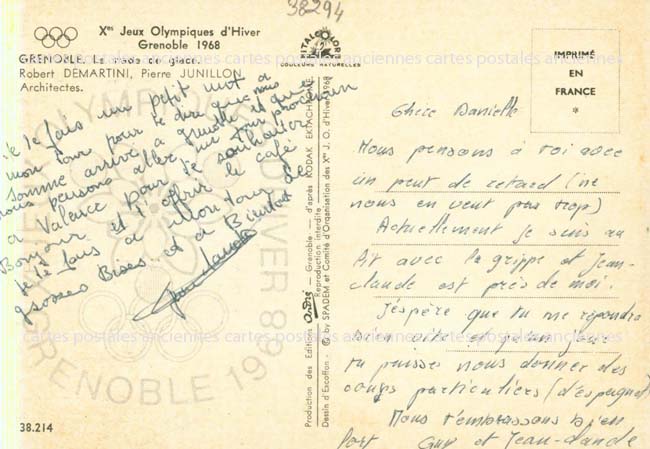 38294
Xes Jeux Olympiques d'Hiver
Grenoble 1968
GRENOBLE. Le stade de glace.
Robert DEMARTINI, Pierre JUNILLON
Architectes.
COULEURS NATURELLES
IMPRIMÉ
EN
FRANCE
*
Je te fais un petit mot a
mon tour pour te dire que nous
somme arrivé a grenoble et que
nous pensons aller un jour prochain
a Valence pour te souhaiter
Bonjour et t'offrir le café
Je te fais a mon tour de
grosses Bises et a Bientot
Chère Danielle
Nous pensons à toi avec
un peut de retard (ne
nous en veut pas trop)
Actuellement je suis au
lit avec la grippe et Jean-
claude est près de moi.
J'éspère que tu me répondra
bien vite et que
tu puisses nous donner des
cours particuliers (d'espagnol)
Nous t'embrassons bien
fort Guy et Jean-claude
Production des Éditions André — Grenoble — d'après KODAK EKTACHROME
Reproduction interdite
Dessin d'Escoffon - © by SPADEM et Comité d'Organisation des Xes J. O. d'Hiver 1968
OLYMPIQUES D'HIVER
GRENOBLE 1968
cartes postales anciennes cartes postales anciennes cartes postales anciennes
38.214